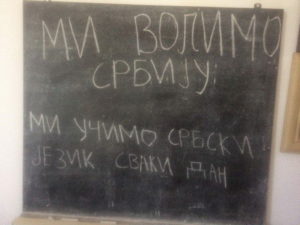 МИ ВОЛИМО
СРБИЈУ!
МИ УЧИМО СРБСКИ
ЈЕЗИК СВАКИ ДАН